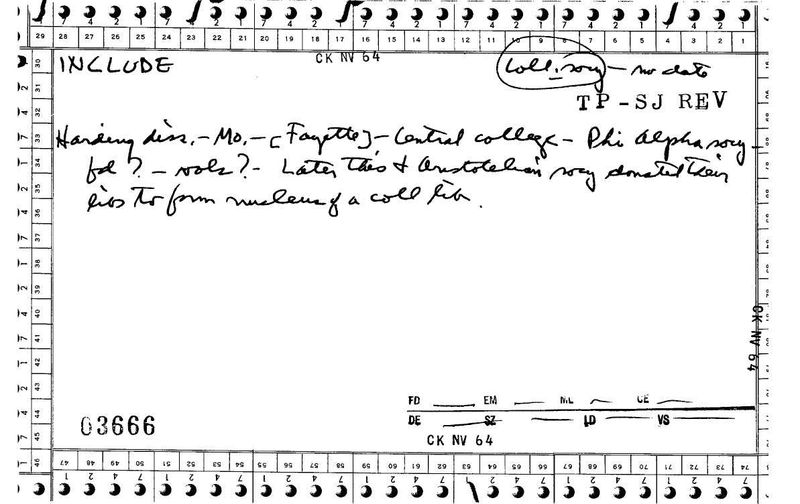 29 28 27 26 25 24 23 22 21 20 19 18 17 16 15 14 13 12 11 10 9 8 7 6 5 4 3 2 1
CK NV 64
INCLUDE
Coll. socy - no date
TP-SJ REV
Harding diss. - Mo. - [Fayette] - Central college - Phi Alpha socy
fd ? - vols ? - Later this & Aristotelian socy donated their
libs to form nucleus of a coll lib.
30
31
32
33
34
35
36
37
38
39
40
41
42
43
44
45
46
CK NV 64
FD EM ML CE
DE SZ LD VS
CK NV 64
03666
47 48 49 50 51 52 53 54 55 56 57 58 59 60 61 62 63 64 65 66 67 68 69 70 71 72 73 74